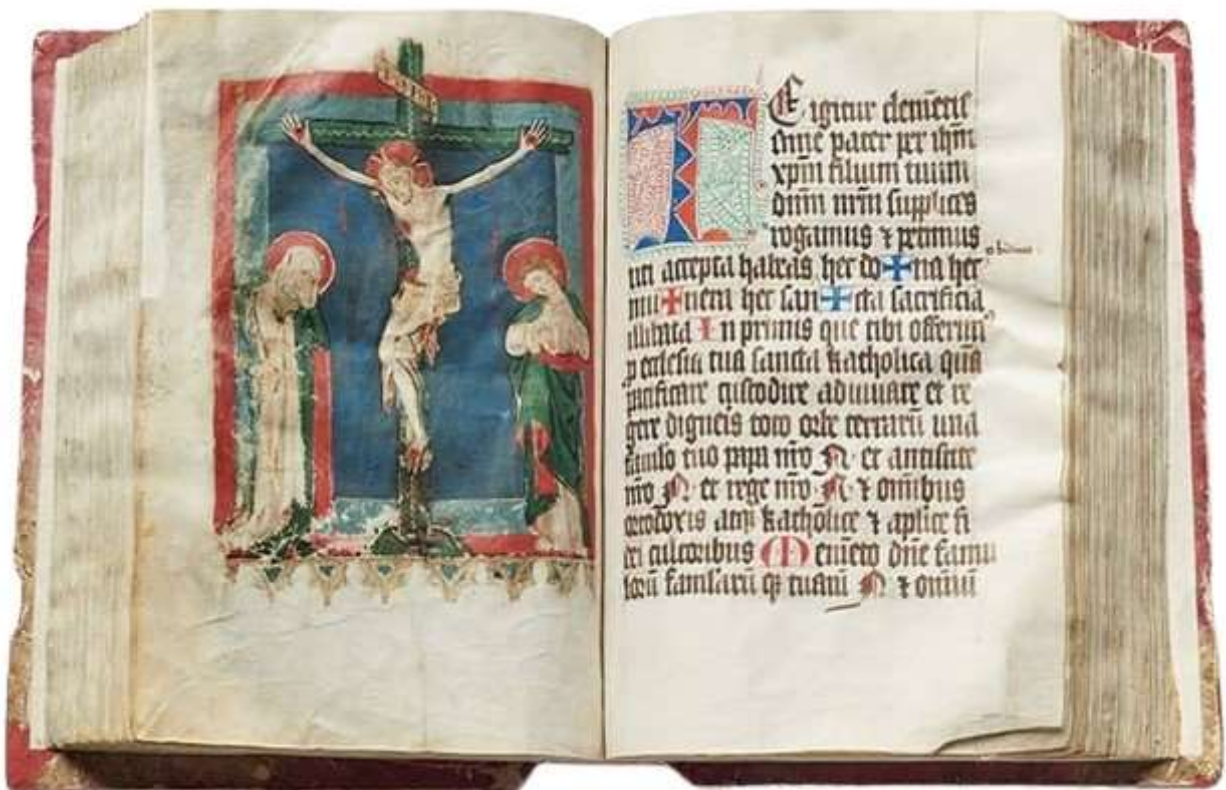 TE igitur clemētis
sime pater per ihm
xpm filium tuum
dnm nrm supplices
rogamus ⁊ petimus
uti accepta habeas hec do✚na hec
mu✚nera hec san✚cta sacrificia
illibata In primis que tibi offerim
p ecclesia tua sancta katholica quā
pacificare custodire adiuuare et re
gere digneis toto orbe terrarū una
famulo tuo papa nro N et antistite
nro N et rege nro N ⁊ omībus
ortodoxis atq katholice ⁊ aplice fi
dei cultoribus Memēto dne famu
lorū famularū q tuarū N ⁊ omīū